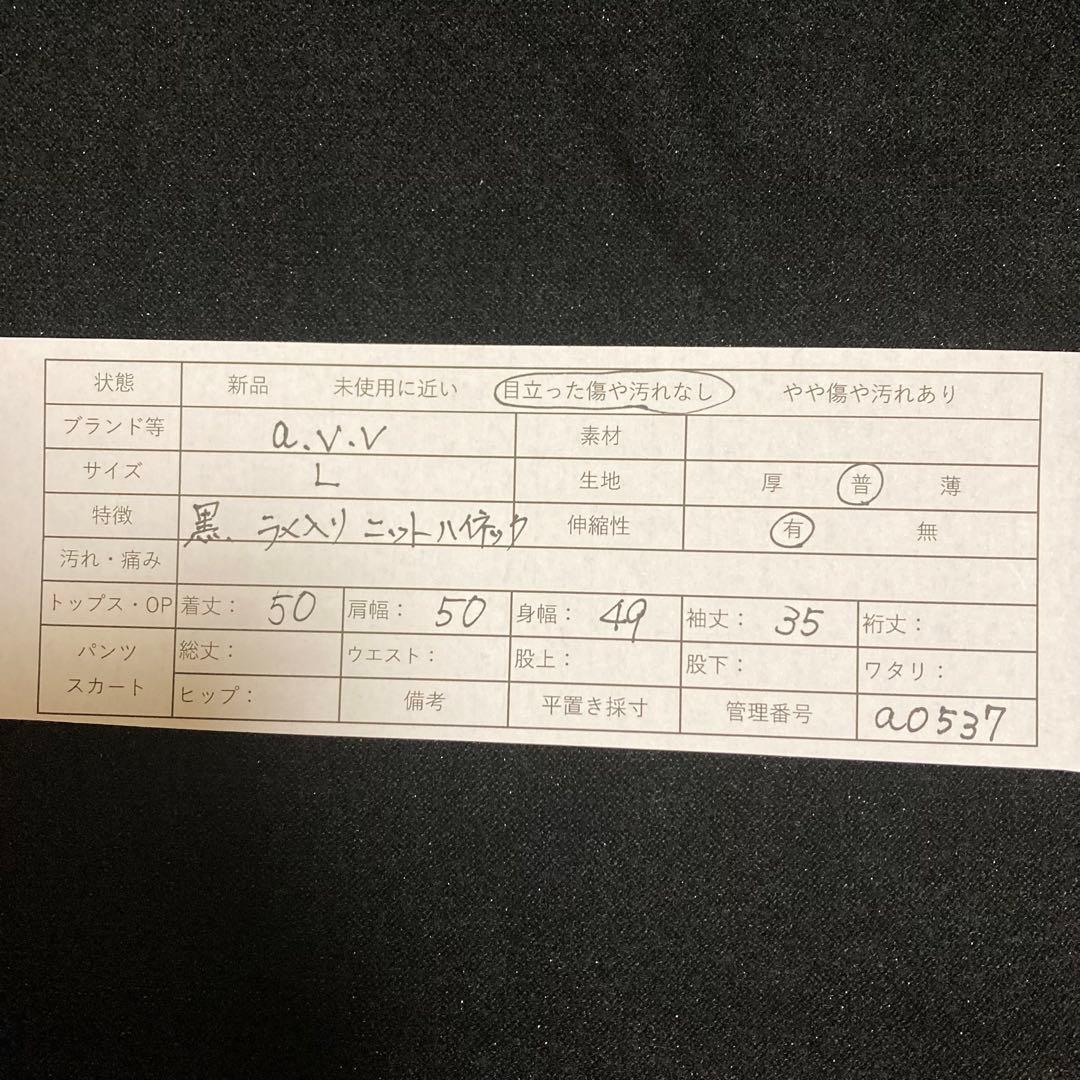 状態 新品 未使用に近い 目立った傷や汚れなし やや傷や汚れあり
ブランド等 a.v.v 素材
サイズ L 生地 厚 普 薄
特徴 黒、ラメ入り ニットハイネック 伸縮性 有 無
汚れ・痛み
トップス・OP 着丈： 50 肩幅： 50 身幅： 49 袖丈： 35 裄丈：
パンツ スカート 総丈： ウエスト： 股上： 股下： ワタリ：
ヒップ： 備考 平置き採寸 管理番号 a0537